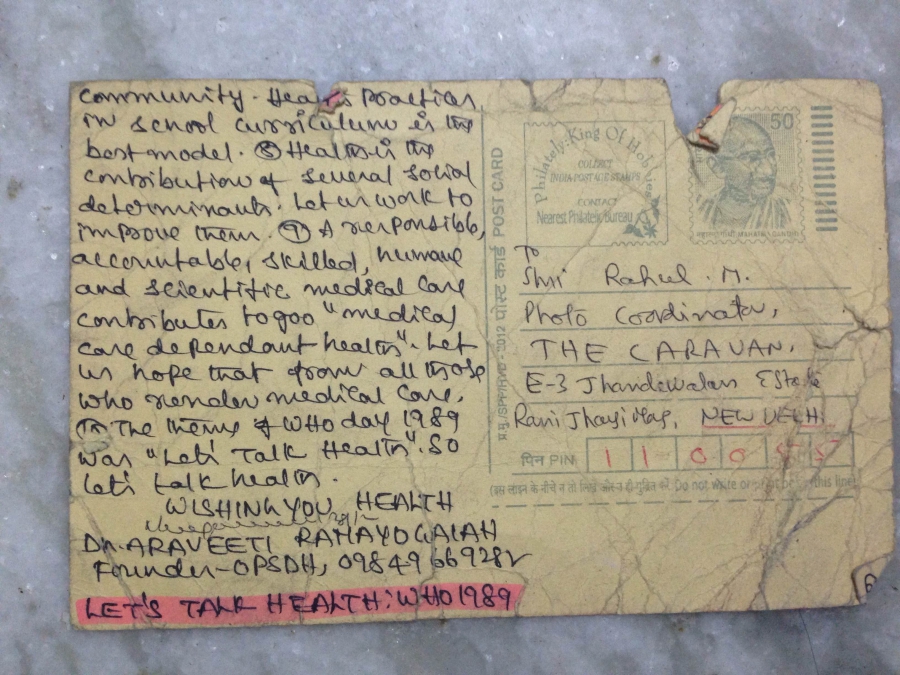 community. Health Practices
in school curriculum is the
best model. ⑧ Health is the
contribution of several social
determinants. Let us work to
improve them. ⑨ A responsible,
accountable, skilled, humane
and scientific medical care
contributes to goo "medical
care dependant health". Let
us hope that from all those
who render medical care.
⑩ The theme of WHO day 1989
was "Let's Talk Health". So
let's talk health.
WISHING YOU HEALTH
DR. ARAVEETI RAMAYOGAIAH
Founder-OPSDH, 09849669282
LET'S TALK HEALTH: WHO 1989
पोस्ट कार्ड POST CARD
Philately: King Of Hobbies
COLLECT
INDIA POSTAGE STAMPS
CONTACT
Nearest Philatelic Bureau
50
MAHATMA GANDHI
To
Shri Rahul . M.
Photo Coordinator,
THE CARAVAN.
E-3 Jhandewalan Estate
Rani Jhansi, NEW DELHI
पिन PIN 1 1 0 0 5 5
(इस लाइन के नीचे न तो लिखें और न ही मुद्रित करें Do not write or print below this line)